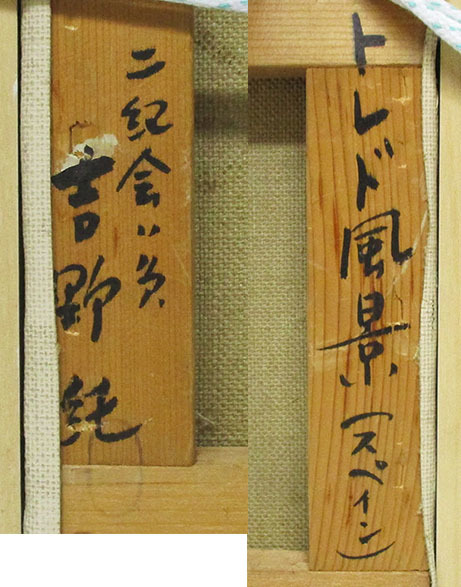 二紀会員
吉野純
トレド風景(スペイン)